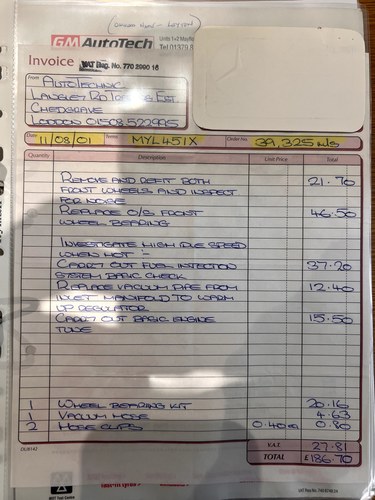 GM AutoTech
Units 1+2 Mayfie
Tel 01379 8
Invoice
VAT Reg. No. 770 2990 16
From
AUTOTECHNIC
LANGLEY RD
CHEDGRAVE
LODDON 01508 522995
Date 11/08/01
MYL 451X
Order No. 39,325 mls
Quantity Description Unit Price Total
REMOVE AND REFIT BOTH 21.70
FRONT WHEELS AND INSPECT
FOR NOISE
REPLACE O/S FRONT 46.50
WHEEL BEARING
INVESTIGATE HIGH IDLE SPEED
WHEN HOT :-
CARRY OUT FUEL INJECTION 37.20
SYSTEM BASIC CHECK
REPLACE VACUUM PIPE FROM 12.40
INLET MANIFOLD TO WARM
UP REGULATOR
CARRY OUT BASIC ENGINE 15.50
TUNE
1 WHEEL BEARING KIT 20.16
1 VACUUM HOSE 4.63
2 HOSE CLIPS 0.40 0.80
V.A.T. 27.81
TOTAL £186.70